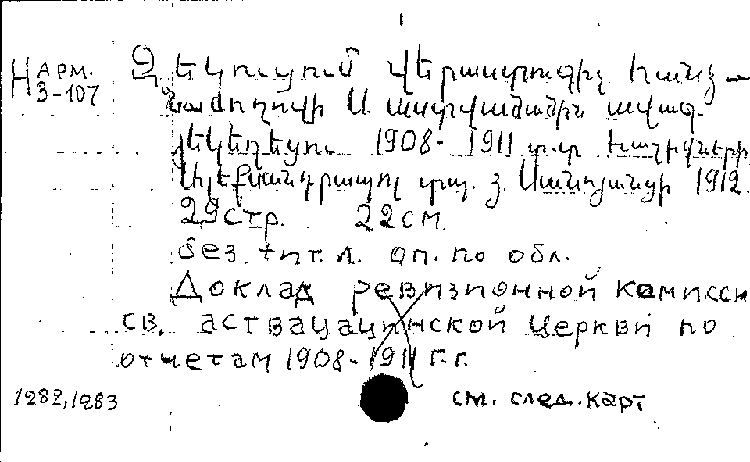 Н АРМ. 3-107
Զեկուցում վերաստուգիչ հանձ-
նաժողովի Ս Աստվածածին ավագ
եկեղեցու 1908-1911
Ալեքսանդրապոլ տպ. 1912.
29стр. 22см.
без тит. л. оп. по обл.
Доклад ревизионной комисси
св. аствацацинской церкви по
отчетам 1908-1911 г.г.
1282,1283 см. след. карт